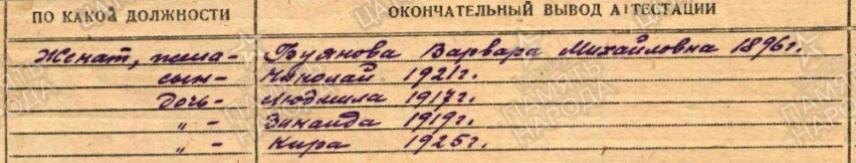 ПО КАКОЙ ДОЛЖНОСТИ ОКОНЧАТЕЛЬНЫЙ ВЫВОД АТТЕСТАЦИИ
Женат, жена- Буянова Варвара Михайловна 1896г.
сын- Николай 1921г.
дочь- Людмила 1917г.
„ - Зинаида 1919г.
„ - Кира 1925г.
ПАМЯТЬ НАРОДА